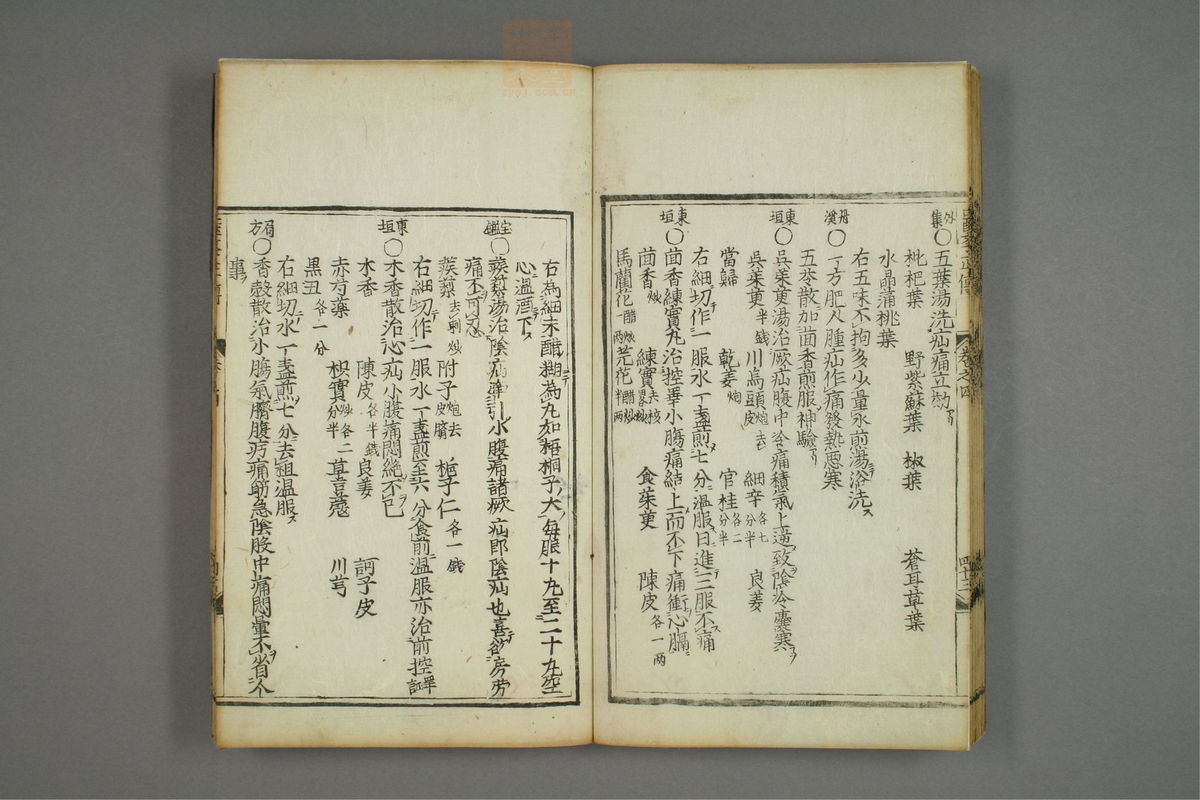 外集〇五葉湯洗疝痛立効
枇杷葉 野紫蘇葉 椒葉 蒼耳草葉
水晶蒲桃葉
右五味不拘多少量水煎湯浴洗
丹溪〇一方肥人腫疝作痛發熱悪寒
五苓散加茴香煎服神驗
東垣〇呉茱萸湯治厥疝腹中冷痛積氣上逆致陰冷囊寒
呉茱萸半錢 川烏頭炮去皮 細辛各七分半 良姜
當歸 乾姜炮 官桂各二分半
右細切作一服水一盞煎七分温服日進三服不痛
東垣〇茴香練實丸治控睾小膓痛結上而不下痛衝心膈
茴香炒 練實去核 食茱萸 陳皮各一两
馬蘭花一两醋炒 芫花半两醋炒
右為細末醋糊為丸如梧桐子大每服十丸至二十丸空
心温酒下
宝鑑〇蒺䔧湯治陰疝牽引小腹痛諸厥疝即陰疝也喜欲房劳
痛不可忍
蒺䔧去刺炒 附子炮去皮臍 梔子仁各一錢
右細切作一服水一盞煎至六分食前温服亦治前控睾証
東垣〇木香散治心疝小腹痛悶絶不已
木香 陳皮各半錢 良姜 訶子皮
赤芍藥 枳實炒各二分半 草荳蔻 川芎
黒丑各一分
右細切水一盞煎七分去粗温服
得方〇香殼散治小膓氣臍腹疠痛筋急陰股中痛悶暈不省人
事